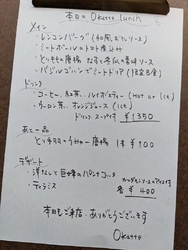 本日の Okatte Lunch
メイン
・レンコンバーグ (和風おろしソース)
・ミートボールのトマト煮込み
・とりももの唐揚 ねぎと香味ソース
・バジルチキンでミートドリア
ドリンク
・コーヒー、紅茶、ルイボスティー (Hot or Ice)
・ウーロン茶、オレンジジュース (Ice)
ドリンク、スープ付 ¥1350
あと一品
・とり手羽の唐揚 1本 ¥100
デザート
・洋なしと巨峰のパンナコッタ
・ティラミス
各 ¥400
本日もご来店、ありがとうございます
Okatte